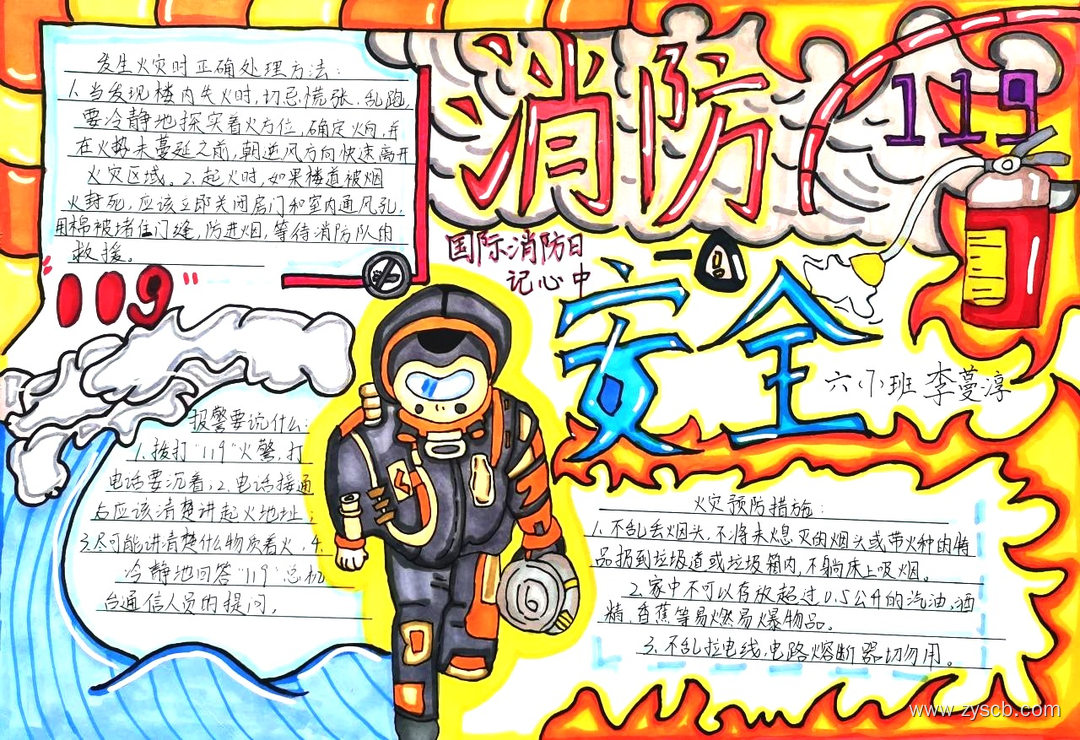 消防
119
安全
国际消防日
记心中
六(7)班 李蔓淳
发生火灾时正确处理方法:
1.当发现楼内失火时,切忌慌张、乱跑,
要冷静地探实着火方位,确定火向,并
在火势未蔓延之前,朝逆风方向快速离开
火灾区域。2.起火时,如果楼道被烟
火封死,应该立即关闭房门和室内通风孔,
用棉被堵住门缝,防进烟,等待消防队的
救援。
"119"
报警要说什么:
1.拨打"119"火警,打
电话要沉着,2.电话接通
后应该清楚讲起火地址;
3.尽可能讲清楚什么物质着火,4.
冷静地回答"119"总机
台通信人员的提问。
火灾预防措施:
1.不乱丢烟头,不将未熄灭的烟头或带火种的物
品扔到垃圾道或垃圾箱内,不躺床上吸烟。
2.家中不可以存放超过0.5公升的汽油,酒
精,香蕉等易燃易爆物品。
3.不乱拉电线,电路熔断器切勿用。
www.zyscb.com